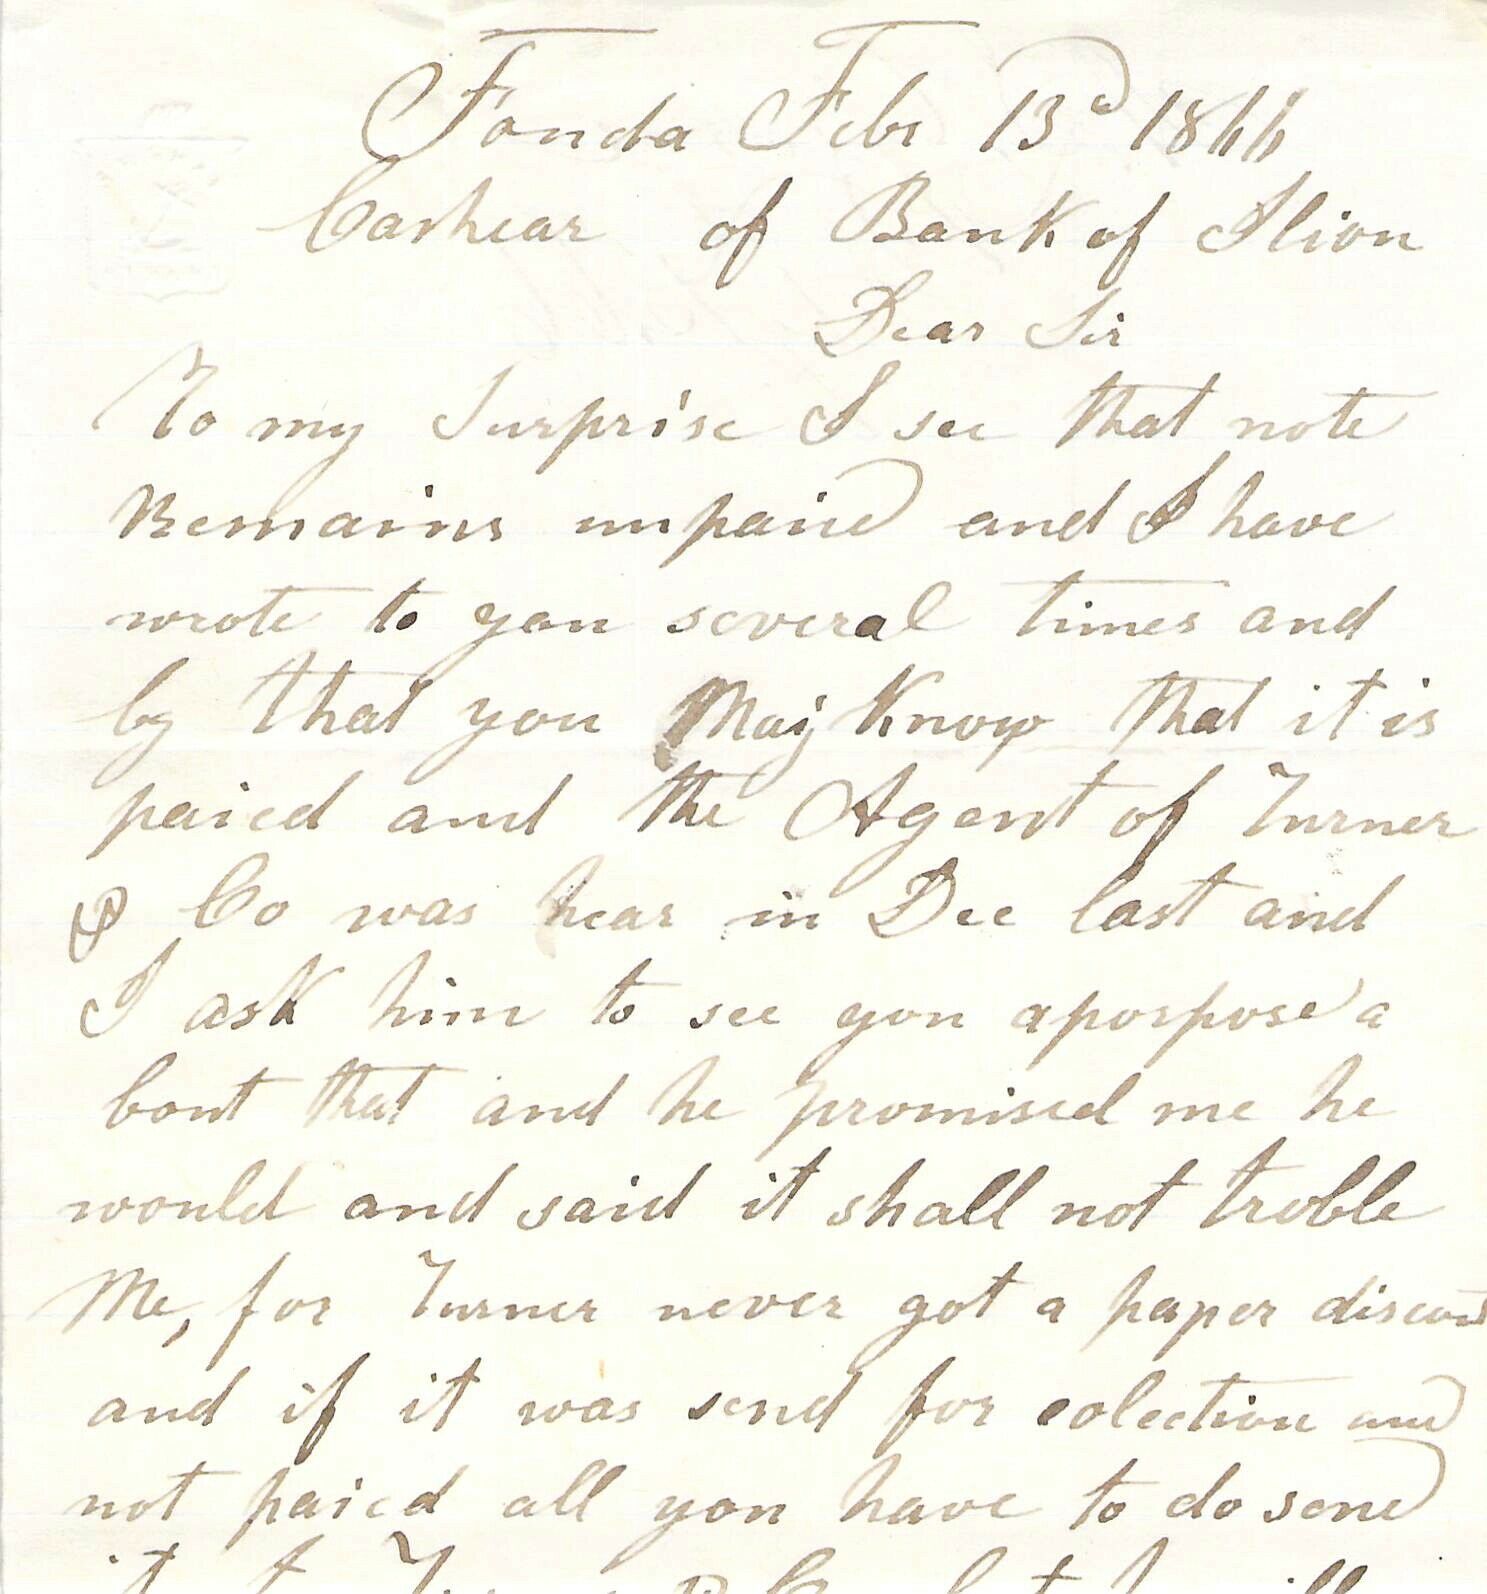 Fonda Febr 13d 1866
Cashear of Bank of Ilion
Dear Sir
To my Surprise I see that note
Remains unpaied and I have
wrote to you several times and
by that you May Know that it is
paied and the Agent of Turner
& Co was hear in Dec last and
I ask him to see you aporpose a
bout that and he promised me he
would and said it shall not troble
Me, for Turner never got a paper discou
and if it was send for colection and
not paied all you have to do send